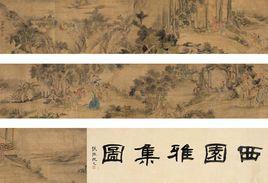 西園雅集圖